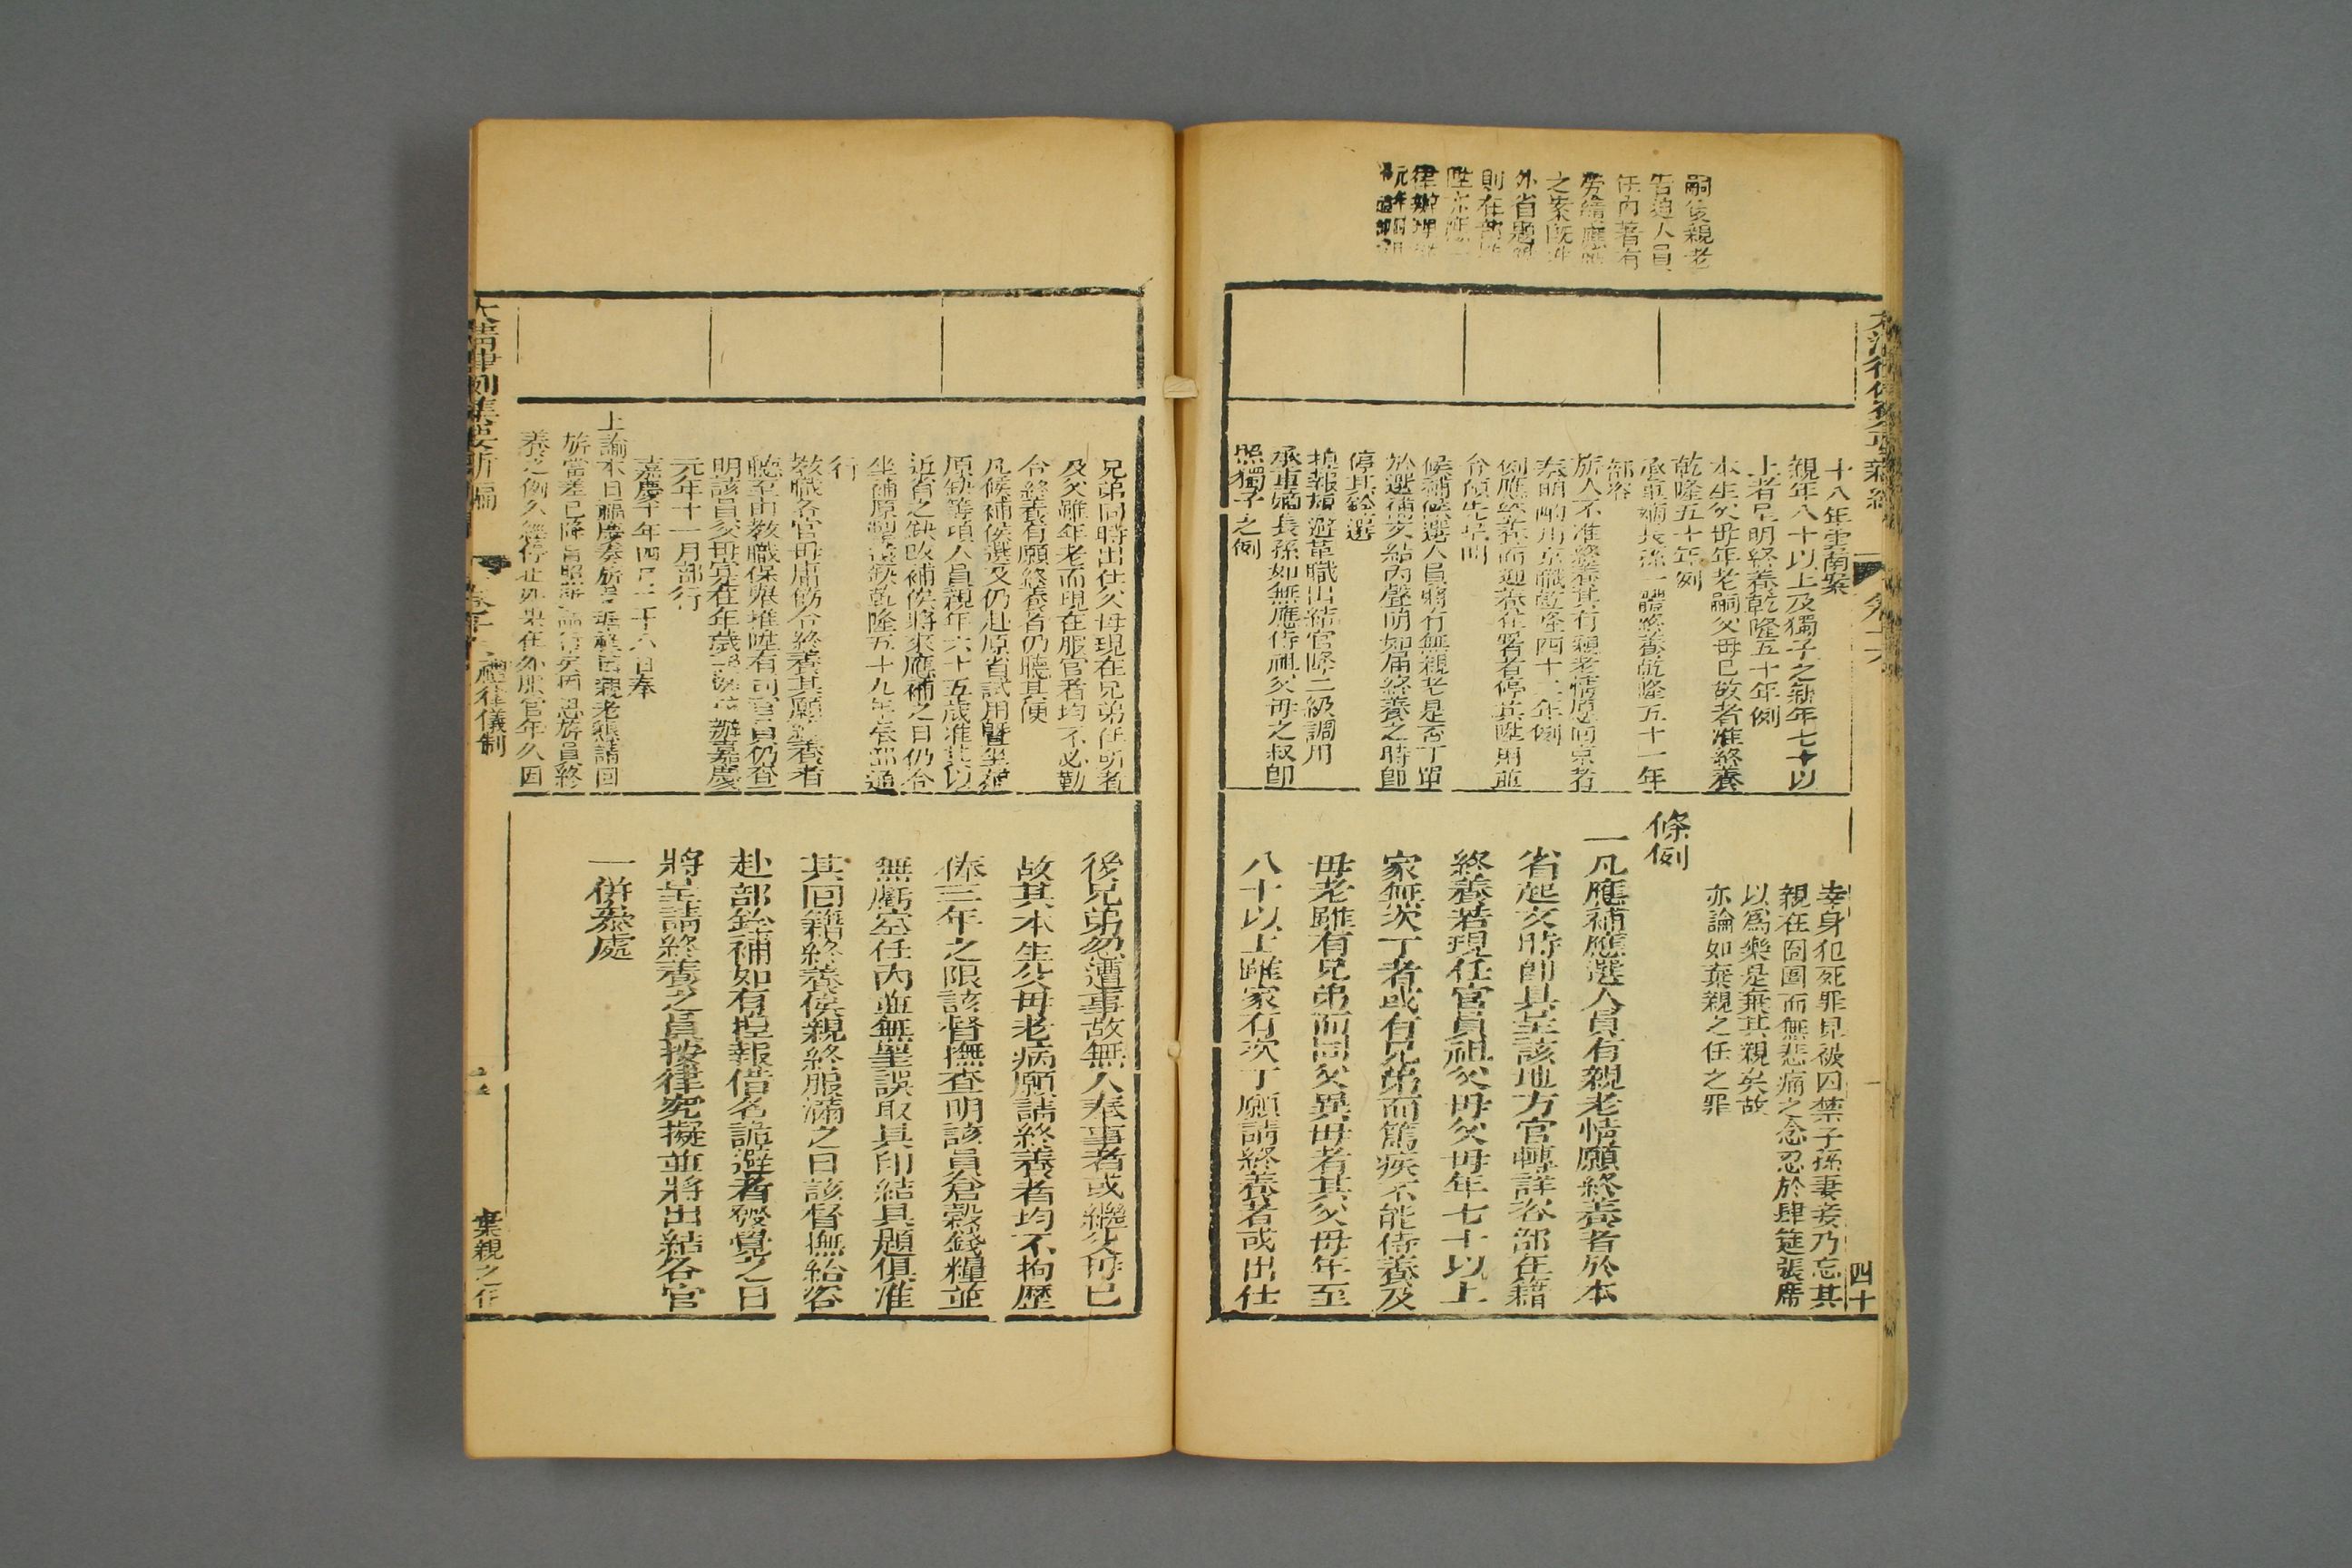 嗣後親老
告近人員
任內著有
勞績應陞
之案既準
外省
則在部
陞
律辦理
元年
十八年雲南案
親年八十以上及獨子之親年七十以
上者呈明終養乾隆五十年例
本生父母年老嗣父母已故者准終養
乾隆五十年例
承重嫡長孫一體終養乾隆五十一年
部咨
旂人不准終養其有親老情愿回京者
奏明酌用京職乾隆四十二年例
例應終養而迴養在署者停其陞用並
令傾先呈明
候補候選人員將有無親老是否丁單
於選補文結內聲明如届終養之時卽
停其銓選
揑報規避革職出結官降二級調用
承重嫡長孫如無應侍祖父母之叔卽
照獨子之例
幸身犯死罪見被囚禁子孫妻妾乃忘其
親在囹圄而無悲痛之念忍於肆筵張席
以爲樂是棄其親矣故
亦論如棄親之任之罪
條例
一凡應補應選人員有親老情願終養者於本
省起文時卽具呈該地方官轉詳咨部在籍
終養若現任官員祖父母父母年七十以上
家無次丁者或有兄弟而篤疾不能侍養及
母老雖有兄弟而同父異母者其父母年至
八十以上雖家有次丁願請終養者或出仕
四十
兄弟同時出仕父母現在兄弟任所者
及父雖年老而現在服官者均不必勒
令終養有願終養者仍聽其便
凡候補候選及仍赴原省試用曁坐補
原缺等項人員親年六十五歲准其以
近省之缺改補俟將來應補之日仍令
坐補原省遠缺乾隆五十九年吏部通
行
教職各官毋庸飭令終養其願終養者
聽至由教職保舉推陞有司官員仍查
明該員父母實在年歲一例辦嘉慶
元年十一月部行
嘉慶十年四月二十六日奉
上諭本日福慶奏旂員親老懇請回
旂當差已降旨照所請行矣向旂員終
養之例久經停止如果在外服官年久因
後兄弟忽遭事故無人奉事者或繼父母已
故其本生父母老病願請終養者均不拘歷
俸三年之限該督撫查明該員倉穀錢糧並
無虧空任內並無罣誤取具印結具題俱准
其回籍終養俟親終服滿之日該督撫給咨
赴部銓補如有揑報借名詭避者發覺之日
將呈請終養之員按律究擬並將出結各官
一併叅處
大清律例集要新編
禮律儀制
棄親之任